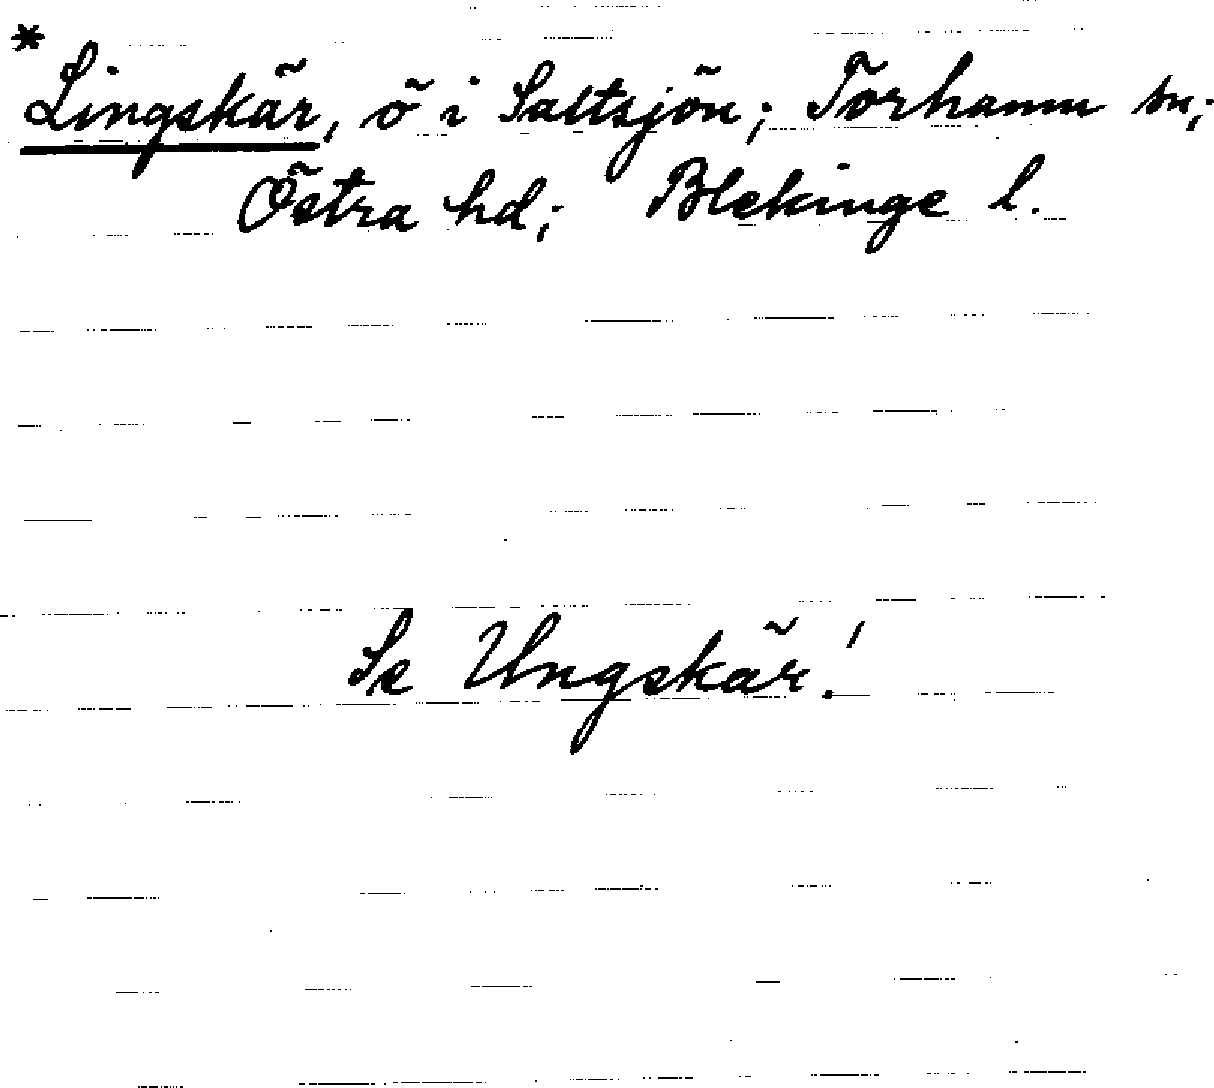 * Lingskär, ö i Saltsjön; Torhamn sn;
Östra hd; Blekinge l.
Se Ungskär!